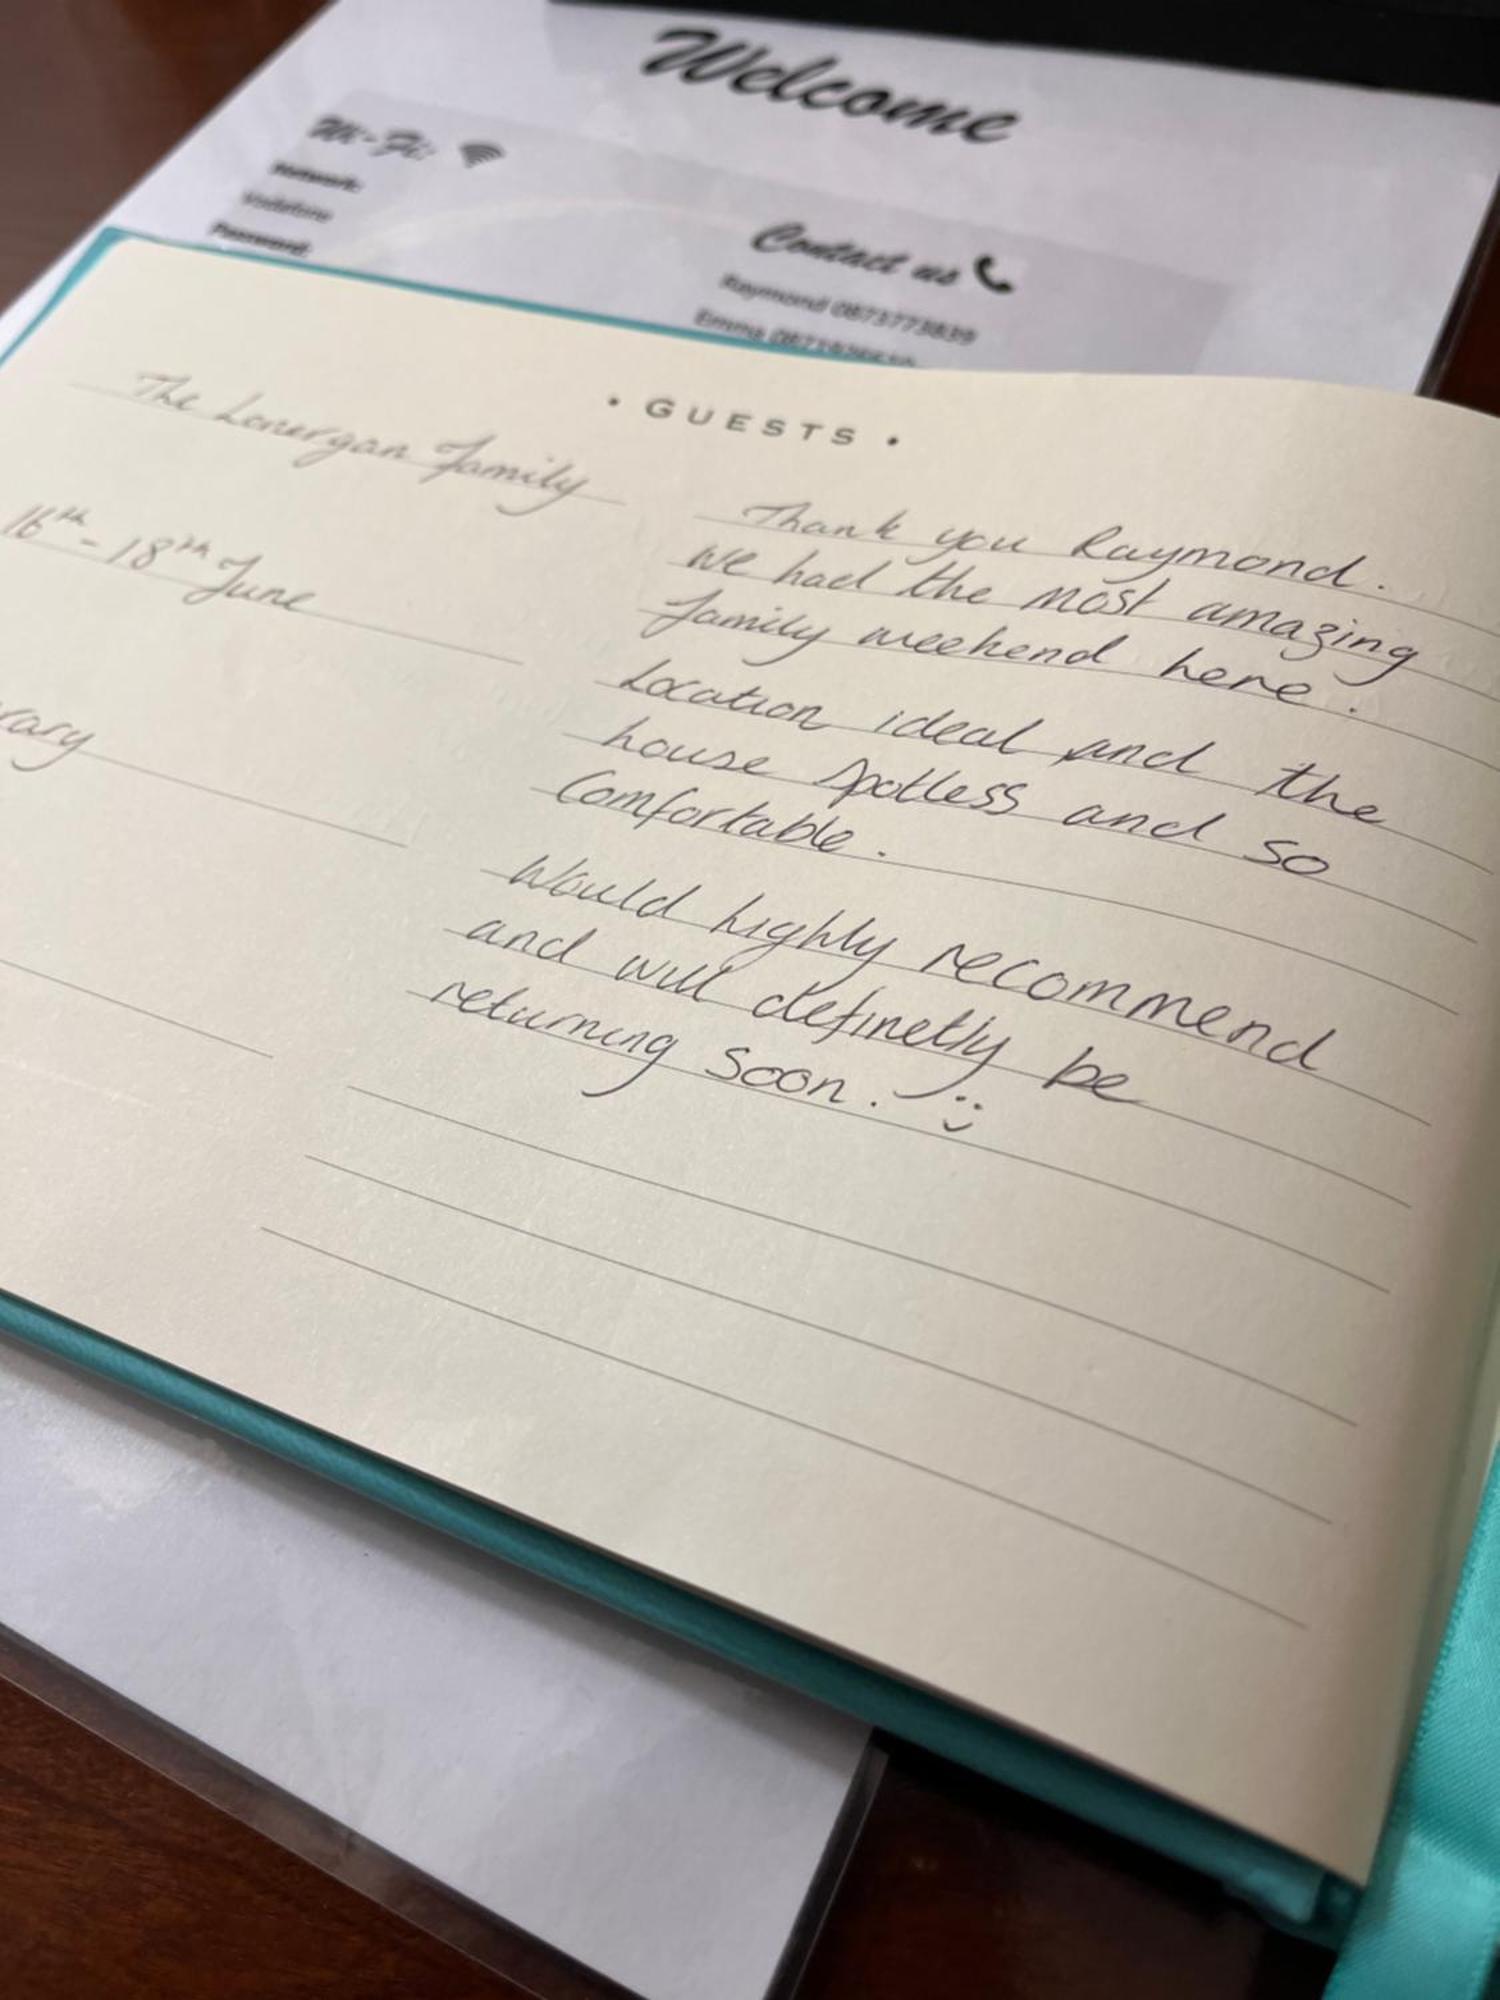 Welcome
Wi-Fi:
Network:
Vodafone
Password:
Contact us
Raymond 0873773839
Emma
• GUESTS •
The Lonergan Family
16th - 18th June
Thank you Raymond.
We had the most amazing
family weekend here.
Location ideal and the
house spotless and so
Comfortable.
Would highly recommend
and will definetly be
returning soon. :)